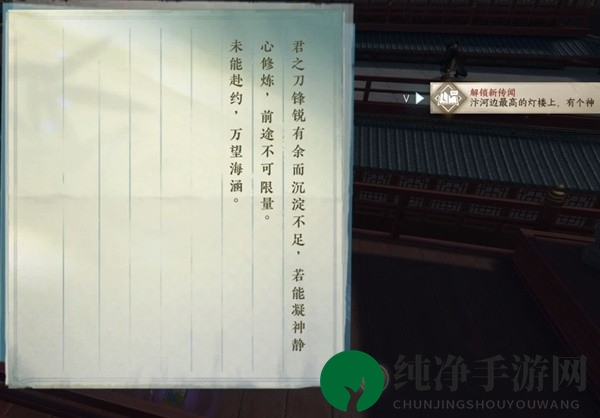 君之刀锋锐有余而沉淀不足，若能凝神静
心修炼，前途不可限量。
未能赴约，万望海涵。
V
解锁新传闻
汴河边最高的灯楼上，有个神
纯净手游网
CHUNJINGSHOUYOUWANG